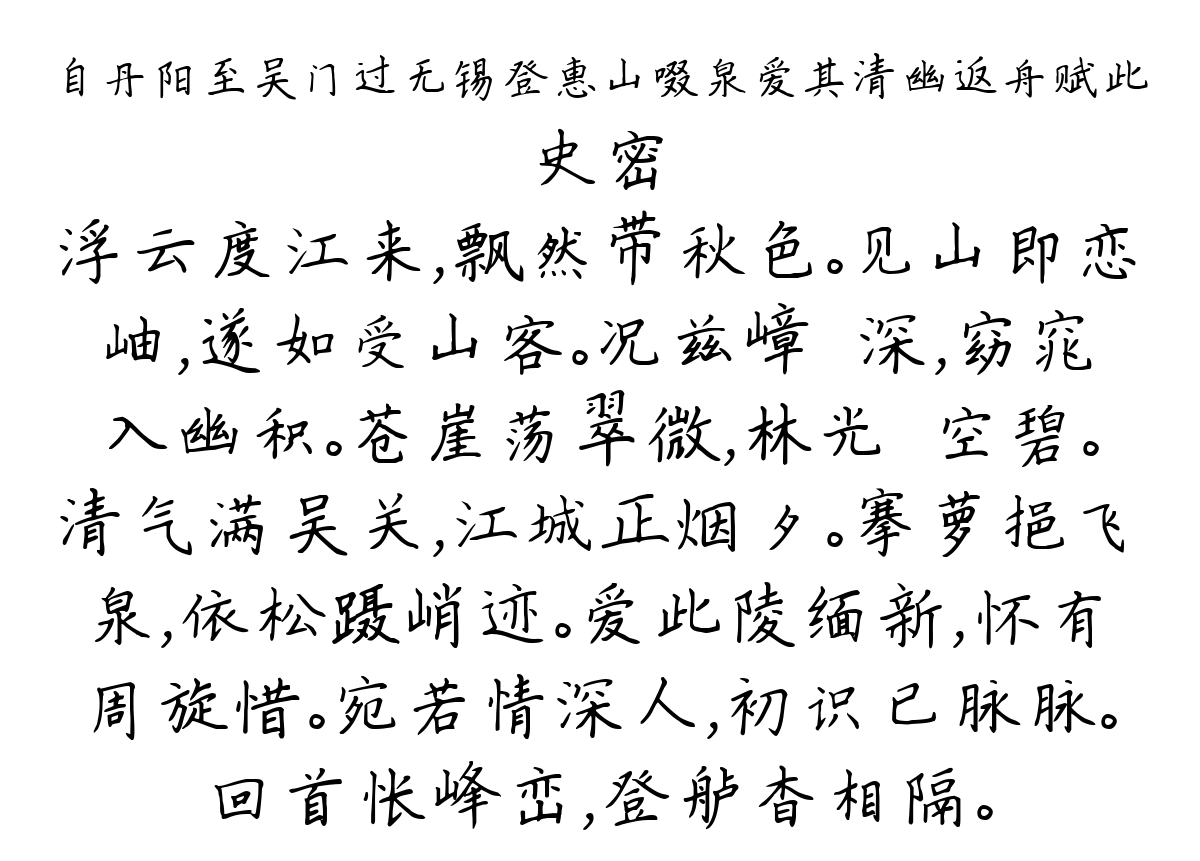 自丹阳至吴门过无锡登惠山啜泉爱其清幽返舟赋此
史密
浮云度江来,飘然带秋色。见山即恋
岫,遂如受山客。况兹嶂 深,窈窕
入幽积。苍崖荡翠微,林光 空碧。
清气满吴关,江城正烟夕。搴萝挹飞
泉,依松蹑峭迹。爱此陵缅新,怀有
周旋惜。宛若情深人,初识已脉脉。
回首怅峰峦,登舻杳相隔。